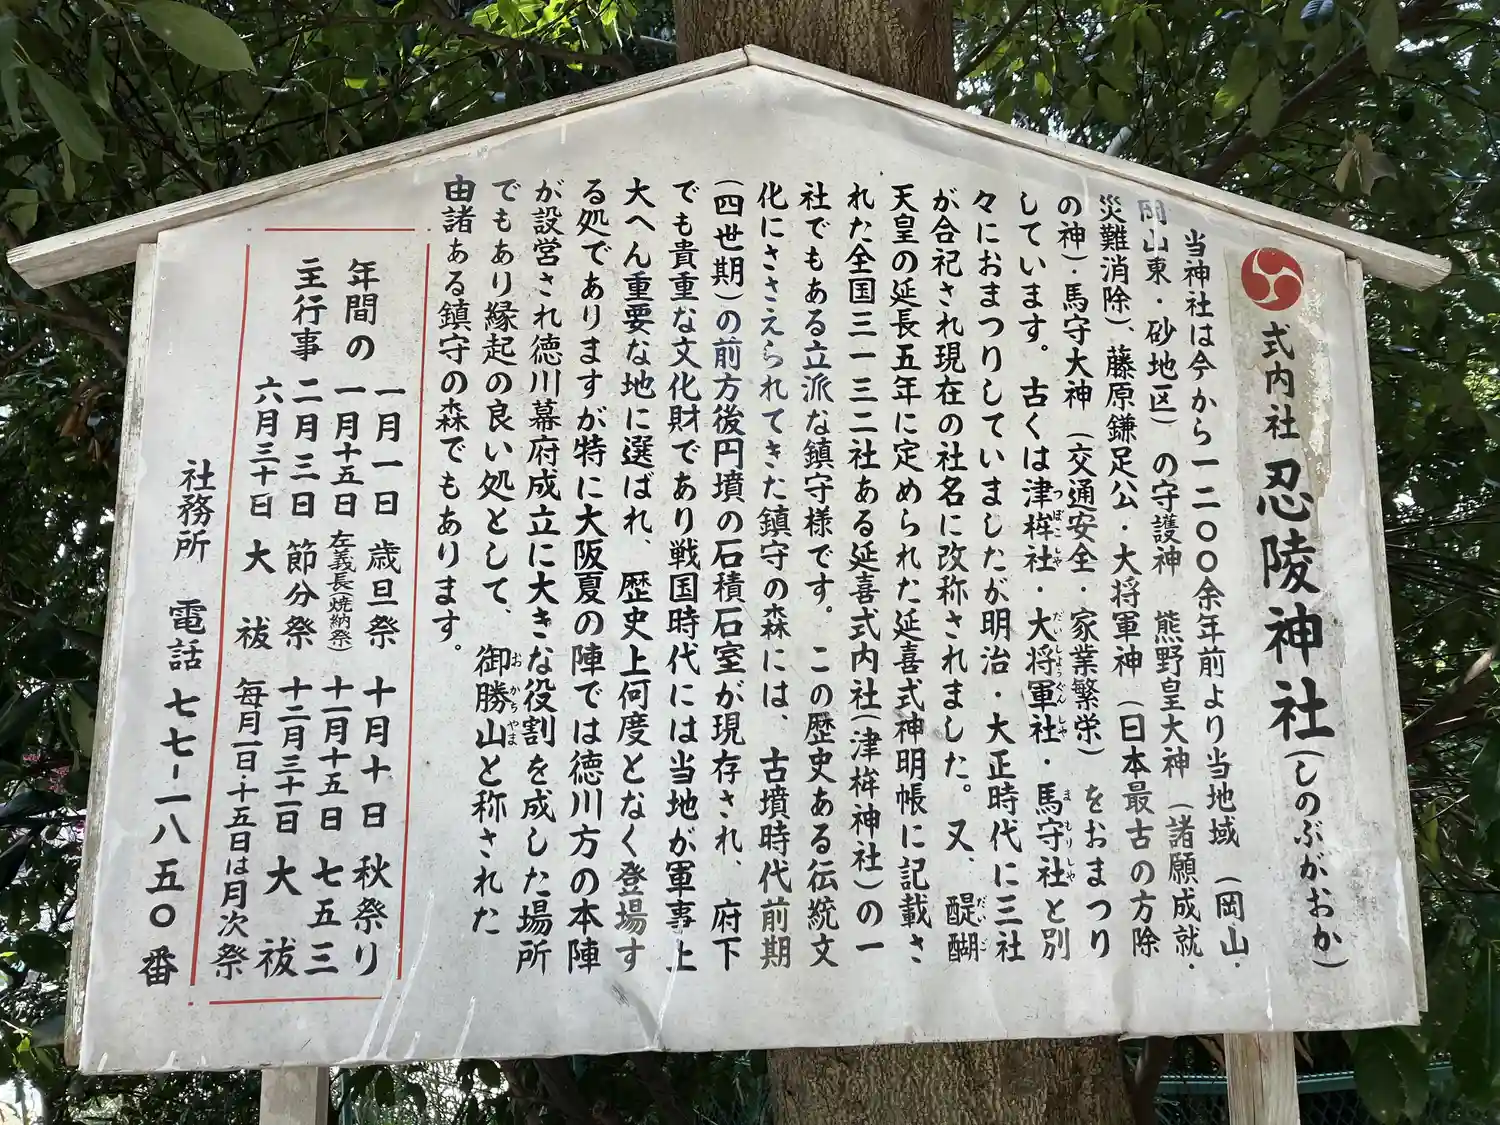 式内社 忍陵神社(しのぶがおか)
当神社は今から一二〇〇余年前より当地域(岡山・
岡山東・砂地区)の守護神 熊野皇大神(諸願成就・
災難消除)、藤原鎌足公・大将軍神(日本最古の方除
の神)・馬守大神(交通安全・家業繁栄)をおまつり
しています。古くは津桙社・大将軍社・馬守社と別
つぼこしや だいしようぐんしや まもりしや
々におまつりしていましたが明治・大正時代に三社
が合祀され現在の社名に改称されました。又、醍醐
だいご
天皇の延長五年に定められた延喜式神明帳に記載さ
れた全国三一三二社ある延喜式内社(津桙神社)の一
社でもある立派な鎮守様です。この歴史ある伝統文
化にささえられてきた鎮守の森には、古墳時代前期
(四世期)の前方後円墳の石積石室が現存され、府下
でも貴重な文化財であり戦国時代には当地が軍事上
大へん重要な地に選ばれ、歴史上何度となく登場す
る処でありますが特に大阪夏の陣では徳川方の本陣
が設営され徳川幕府成立に大きな役割を成した場所
でもあり縁起の良い処として、御勝山と称された
おかちやま
由諸ある鎮守の森でもあります。
年間の
主行事
一月一日 歳旦祭 十月十日 秋祭り
一月十五日 左義長(焼納祭) 十一月十五日 七五三
二月三日 節分祭 十二月三十一日 大祓
六月三十日 大祓 毎月一日・十五日は月次祭
社務所 電話 七七-一八五〇番